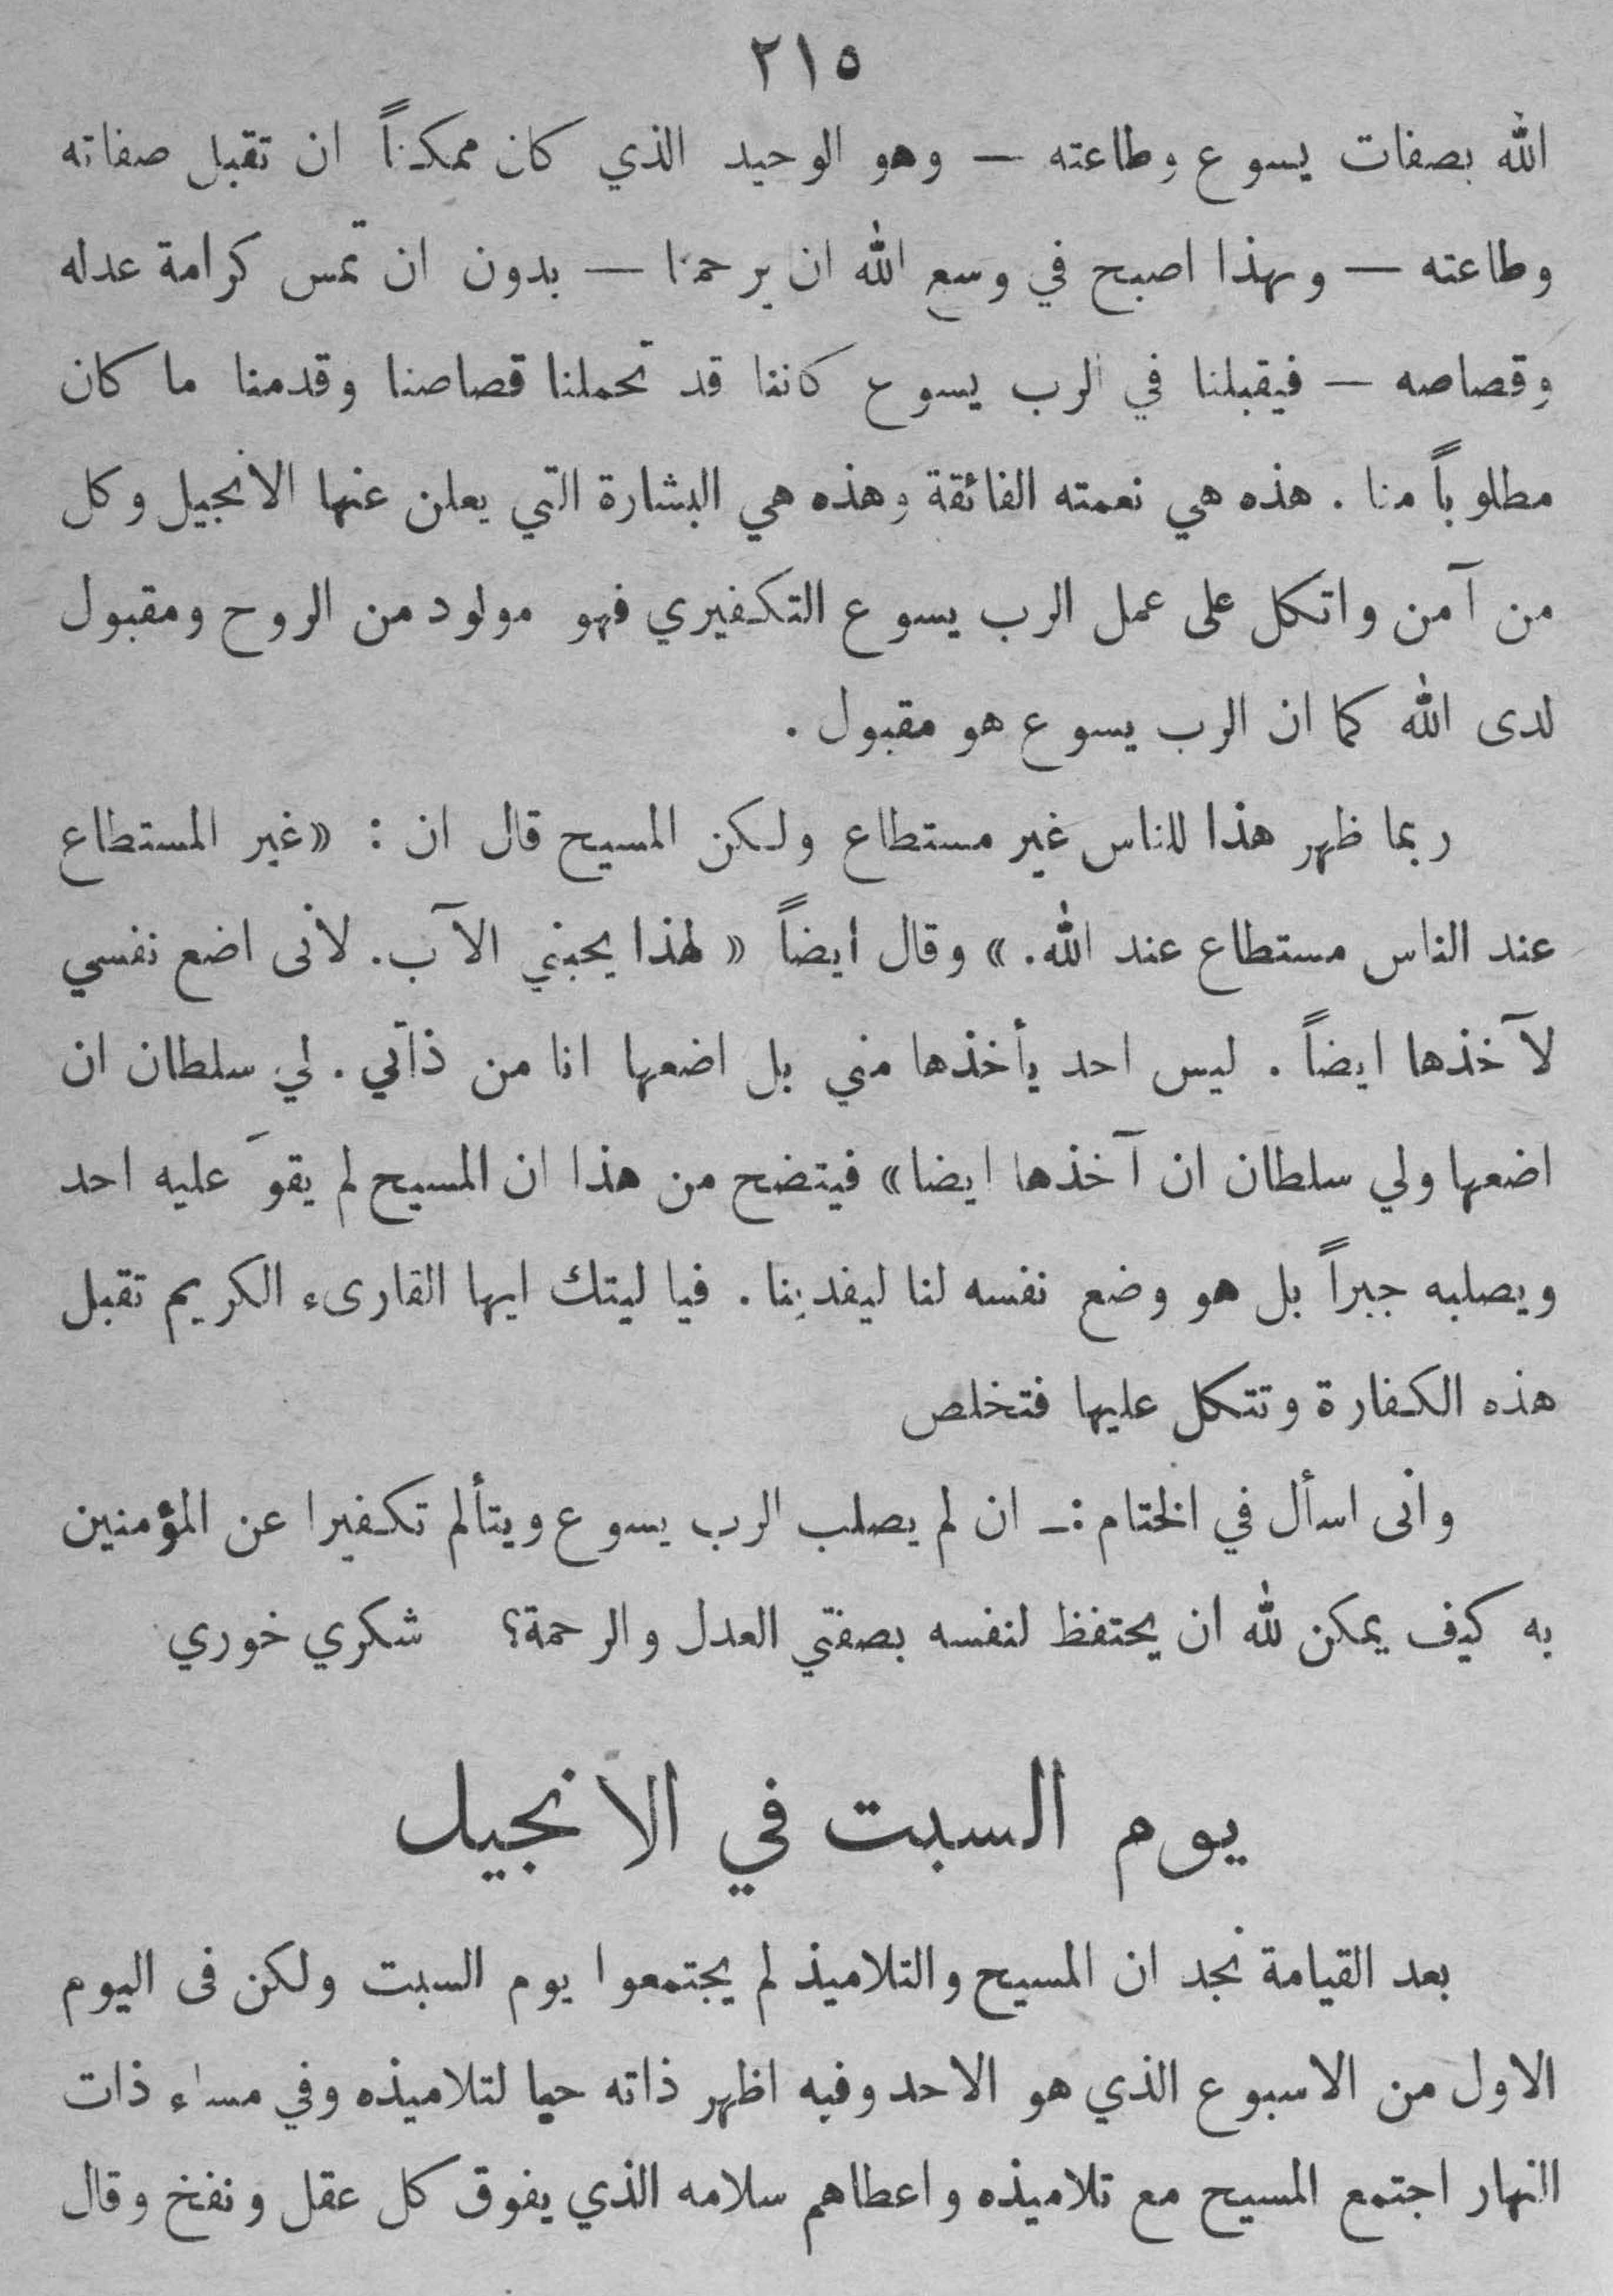 ٢١٥
الله بصفات يسوع وطاعته — وهو الوحيد الذي كان ممكناً ان تقبل صفاته
وطاعته — وبهذا اصبح في وسع الله ان يرحمنا — بدون ان تمس كرامة عدله
وقصاصه — فيقبلنا في الرب يسوع كاننا قد تحملنا قصاصنا وقدمنا ما كان
مطلوباً منا . هذه هي نعمته الفائقة وهذه هي البشارة التي يعلن عنها الانجيل وكل
من آمن واتكل على عمل الرب يسوع التكفيري فهو مولود من الروح ومقبول
لدى الله كما ان الرب يسوع هو مقبول .
ربما ظهر هذا للناس غير مستطاع ولكن المسيح قال ان : «غير المستطاع
عند الناس مستطاع عند الله. » وقال ايضاً « لهذا يحبني الآب. لأنى اضع نفسي
لآخذها ايضاً . ليس احد يأخذها مني بل اضعها انا من ذاتي . لي سلطان ان
اضعها ولي سلطان ان آخذها ايضا» فيتضح من هذا ان المسيح لم يقوَ عليه احد
ويصلبه جبراً بل هو وضع نفسه لنا ليفدينا . فيا ليتك ايها القارىء الكريم تقبل
هذه الكفارة وتتكل عليها فتخلص
وانى اسأل في الختام :ـ ان لم يصلب الرب يسوع ويتألم تكفيرا عن المؤمنين
به كيف يمكن لله ان يحتفظ لنفسه بصفتي العدل والرحمة؟ شكري خوري
يوم السبت في الانجيل
بعد القيامة نجد ان المسيح والتلاميذ لم يجتمعوا يوم السبت ولكن فى اليوم
الاول من الاسبوع الذي هو الاحد وفيه اظهر ذاته حيا لتلاميذه وفي مساء ذات
النهار اجتمع المسيح مع تلاميذه واعطاهم سلامه الذي يفوق كل عقل ونفخ وقال